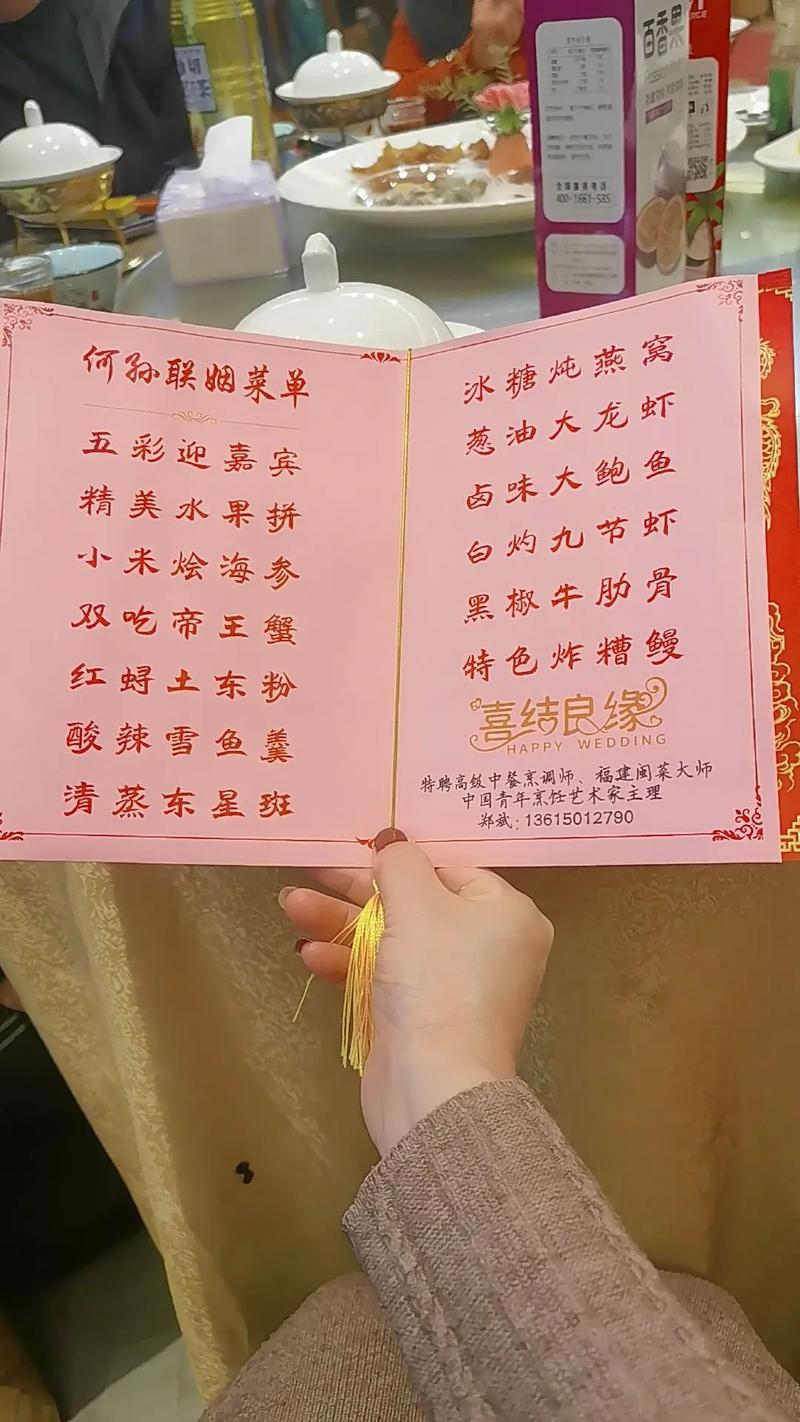 百香果
全国服务电话
400-1661-535
何孙联姻菜单
五彩迎嘉宾
精美水果拼
小米烩海参
双吃帝王蟹
红蟳土东粉
酸辣雪鱼羹
清蒸东星斑
冰糖炖燕窝
葱油大龙虾
卤味大鲍鱼
白灼九节虾
黑椒牛肋骨
特色炸糟鳗
喜结良缘
HAPPY WEDDING
特聘高级中餐烹调师、福建闽菜大师
中国青年烹饪艺术家主理
郑斌:13615012790